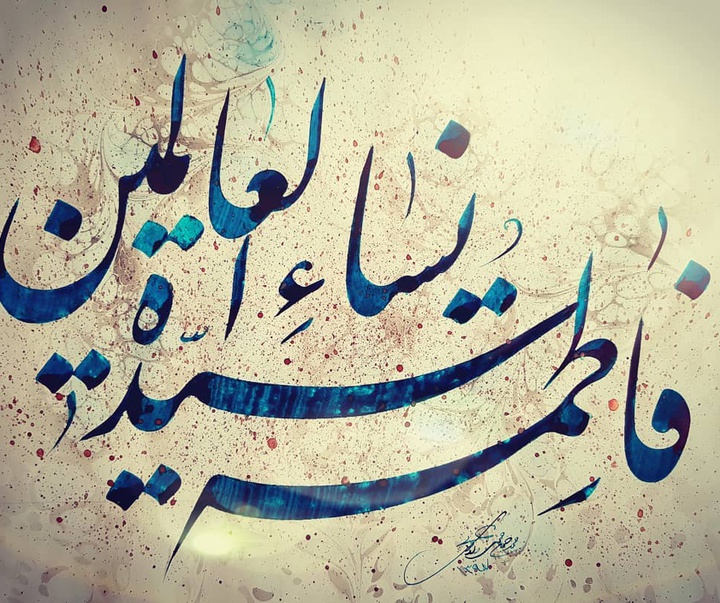 فاطِمه سیّدة نساءِ العالمین